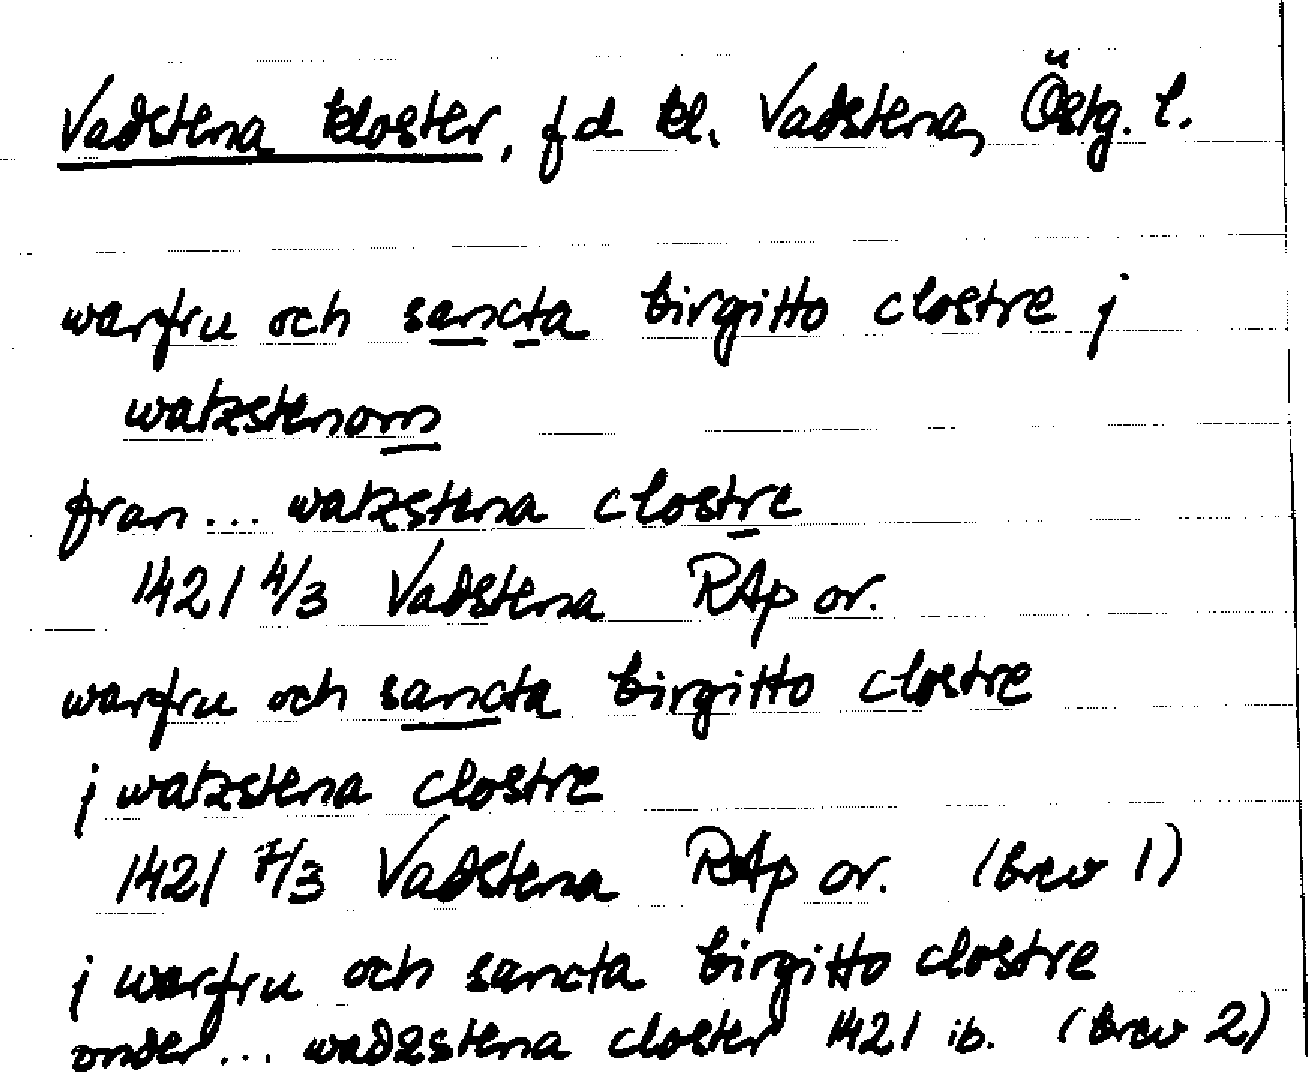 Vadstena kloster, fd kl. Vadstena, Östg. l.
warfru och sancta birgitto clostre j
watzstenom
fran... watzstena clostre
1421 4/3 Vadstena RAp or.
warfru och sancta birgitto clostre
j watzstena clostre
1421 7/3 Vadstena RAp or. (brev 1)
j warfru och sancta birgitto clostre
onder... wadzstena closter 1421 ib. (brev 2)